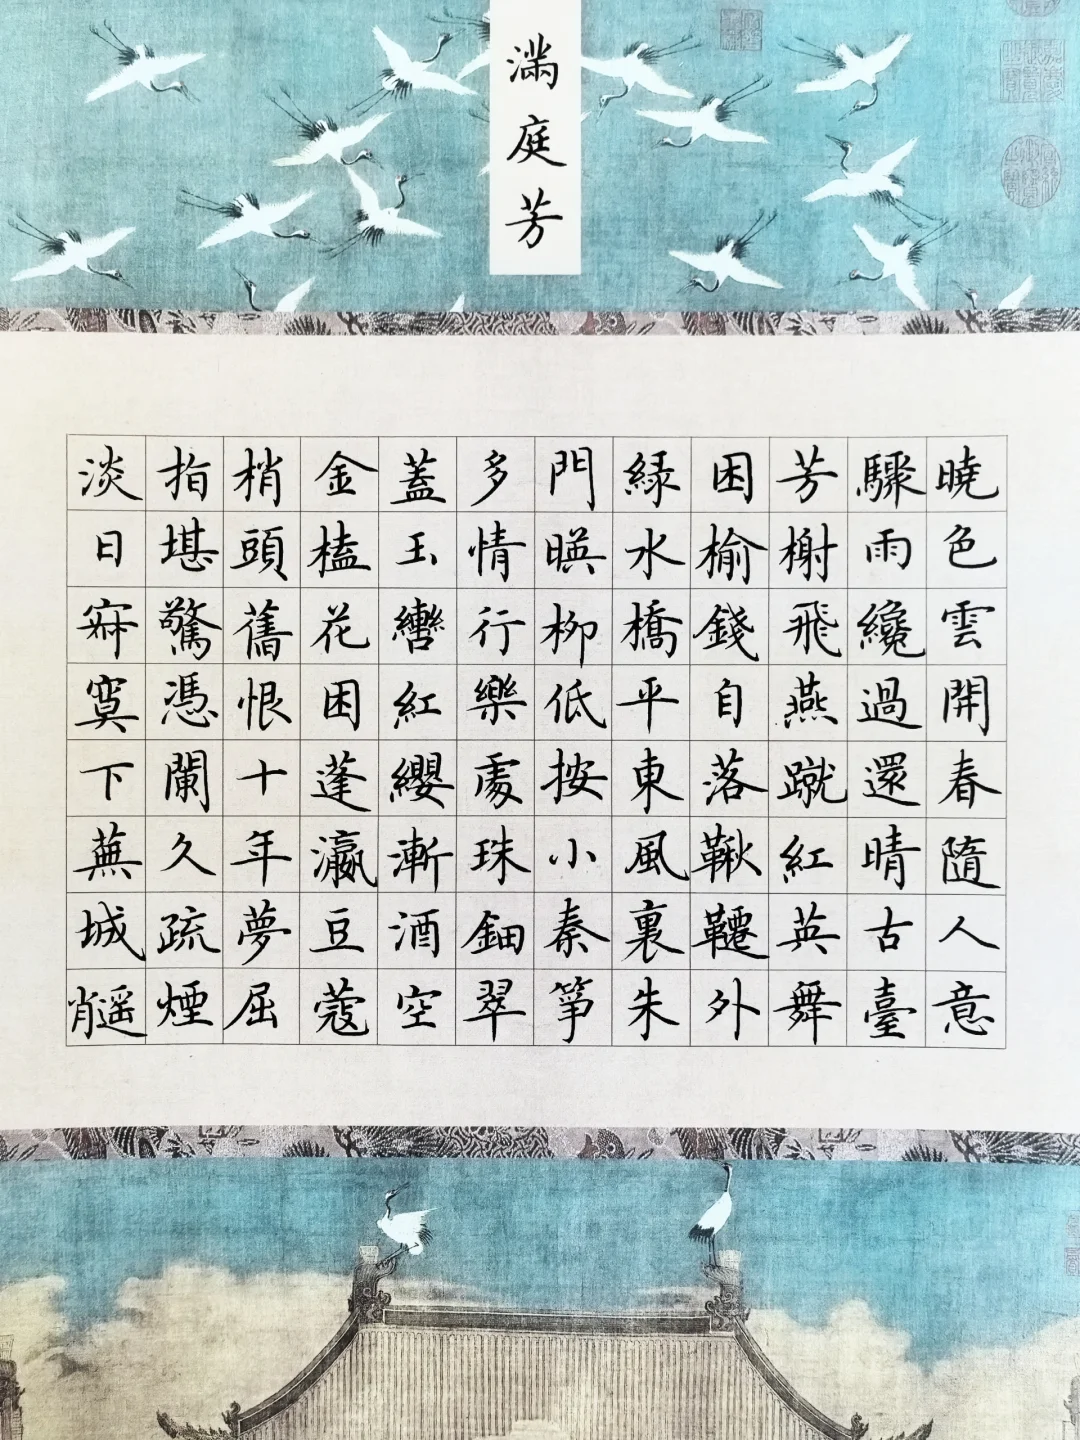 滿庭芳
曉色雲開春隨人意
驟雨纔過還晴古臺
芳榭飛燕蹴紅英舞
困榆錢自落鞦韆外
緑水橋平東風裏朱
門暎柳低按小秦箏
多情行樂處珠鈿翠
蓋玉轡紅纓漸酒空
金榼花困蓬瀛豆蔻
梢頭舊恨十年夢屈
指堪驚憑闌久疏煙
淡日寂寞下蕪城肖遥